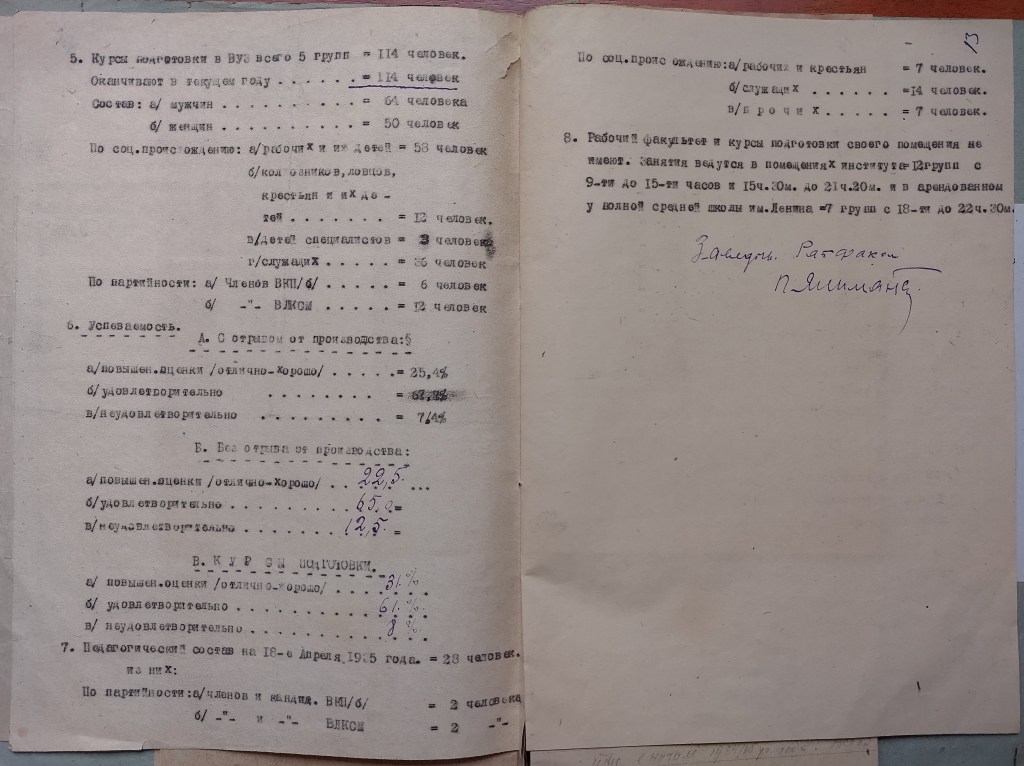 5. Курсы подготовки в ВУЗ всего 5 групп = 114 человек.
Оканчивают в текущем году . . . . . . = 114 человек
Состав: а/ мужчин . . . . . . . . . . = 64 человека
б/ женщин . . . . . . . . . . = 50 человек
По соц.происхождению: а/рабочих и их детей = 58 человек
б/колхозников, ловцов,
крестьян и их де -
тей . . . . . . . = 12 человек.
в/детей специалистов = 3 человек
г/служащих . . . . . = 36 человек
По партийности: а/ Членов ВКП/б/ . . . . . = 6 человек
б/ -"- ВЛКСМ . . . . . = 12 человек
6. Успеваемость.
А. С отрывом от производства:§
а/повышен.оценки /отлично-хорошо/ . . . . . = 25,4%
б/удовлетворительно . . . . . . . . =
в/неудовлетворительно . . . . . . . . . = 7,4%
Б. Без отрыва от производства:
а/повышен.оценки /отлично-хорошо/ . . 22,5. ...
б/удовлетворительно . . . . . . . . . . 65.0=
в/неудовлетворительно . . . . . . . . . 12,5. =
В. К У Р СЫ ПОДГОТОВКИ.
а/ повышен.оценки /отлично-хорошо/ . . . 31.%
б/ удовлетворительно . . . . . . . . . . 61.%.
в/ неудовлетворительно . . . . . . . . . 8 %
7. Педагогический состав на 18-е Апреля 1935 года. = 28 человек.
из них:
По партийности:а/членов и кандид. ВКП/б/ = 2 человека
б/ -"- и -"- ВЛКСМ = 2 -"-
13
По соц.происхождению:а/рабочих и крестьян = 7 человек.
б/служащих . . . . . . =14 человек.
в/п р о ч и х . . . . . = 7 человек.
8. Рабочий факультет и курсы подготовки своего помещения не
имеют. Занятия ведутся в помещениях института=12групп с
9-ти до 15-ти часов и 15ч.30м. до 21ч.20м. и в арендованном
у полной средней школы им.Ленина =7 групп с 18-ти до 22ч.30м.
Заведующ. Рабфаком